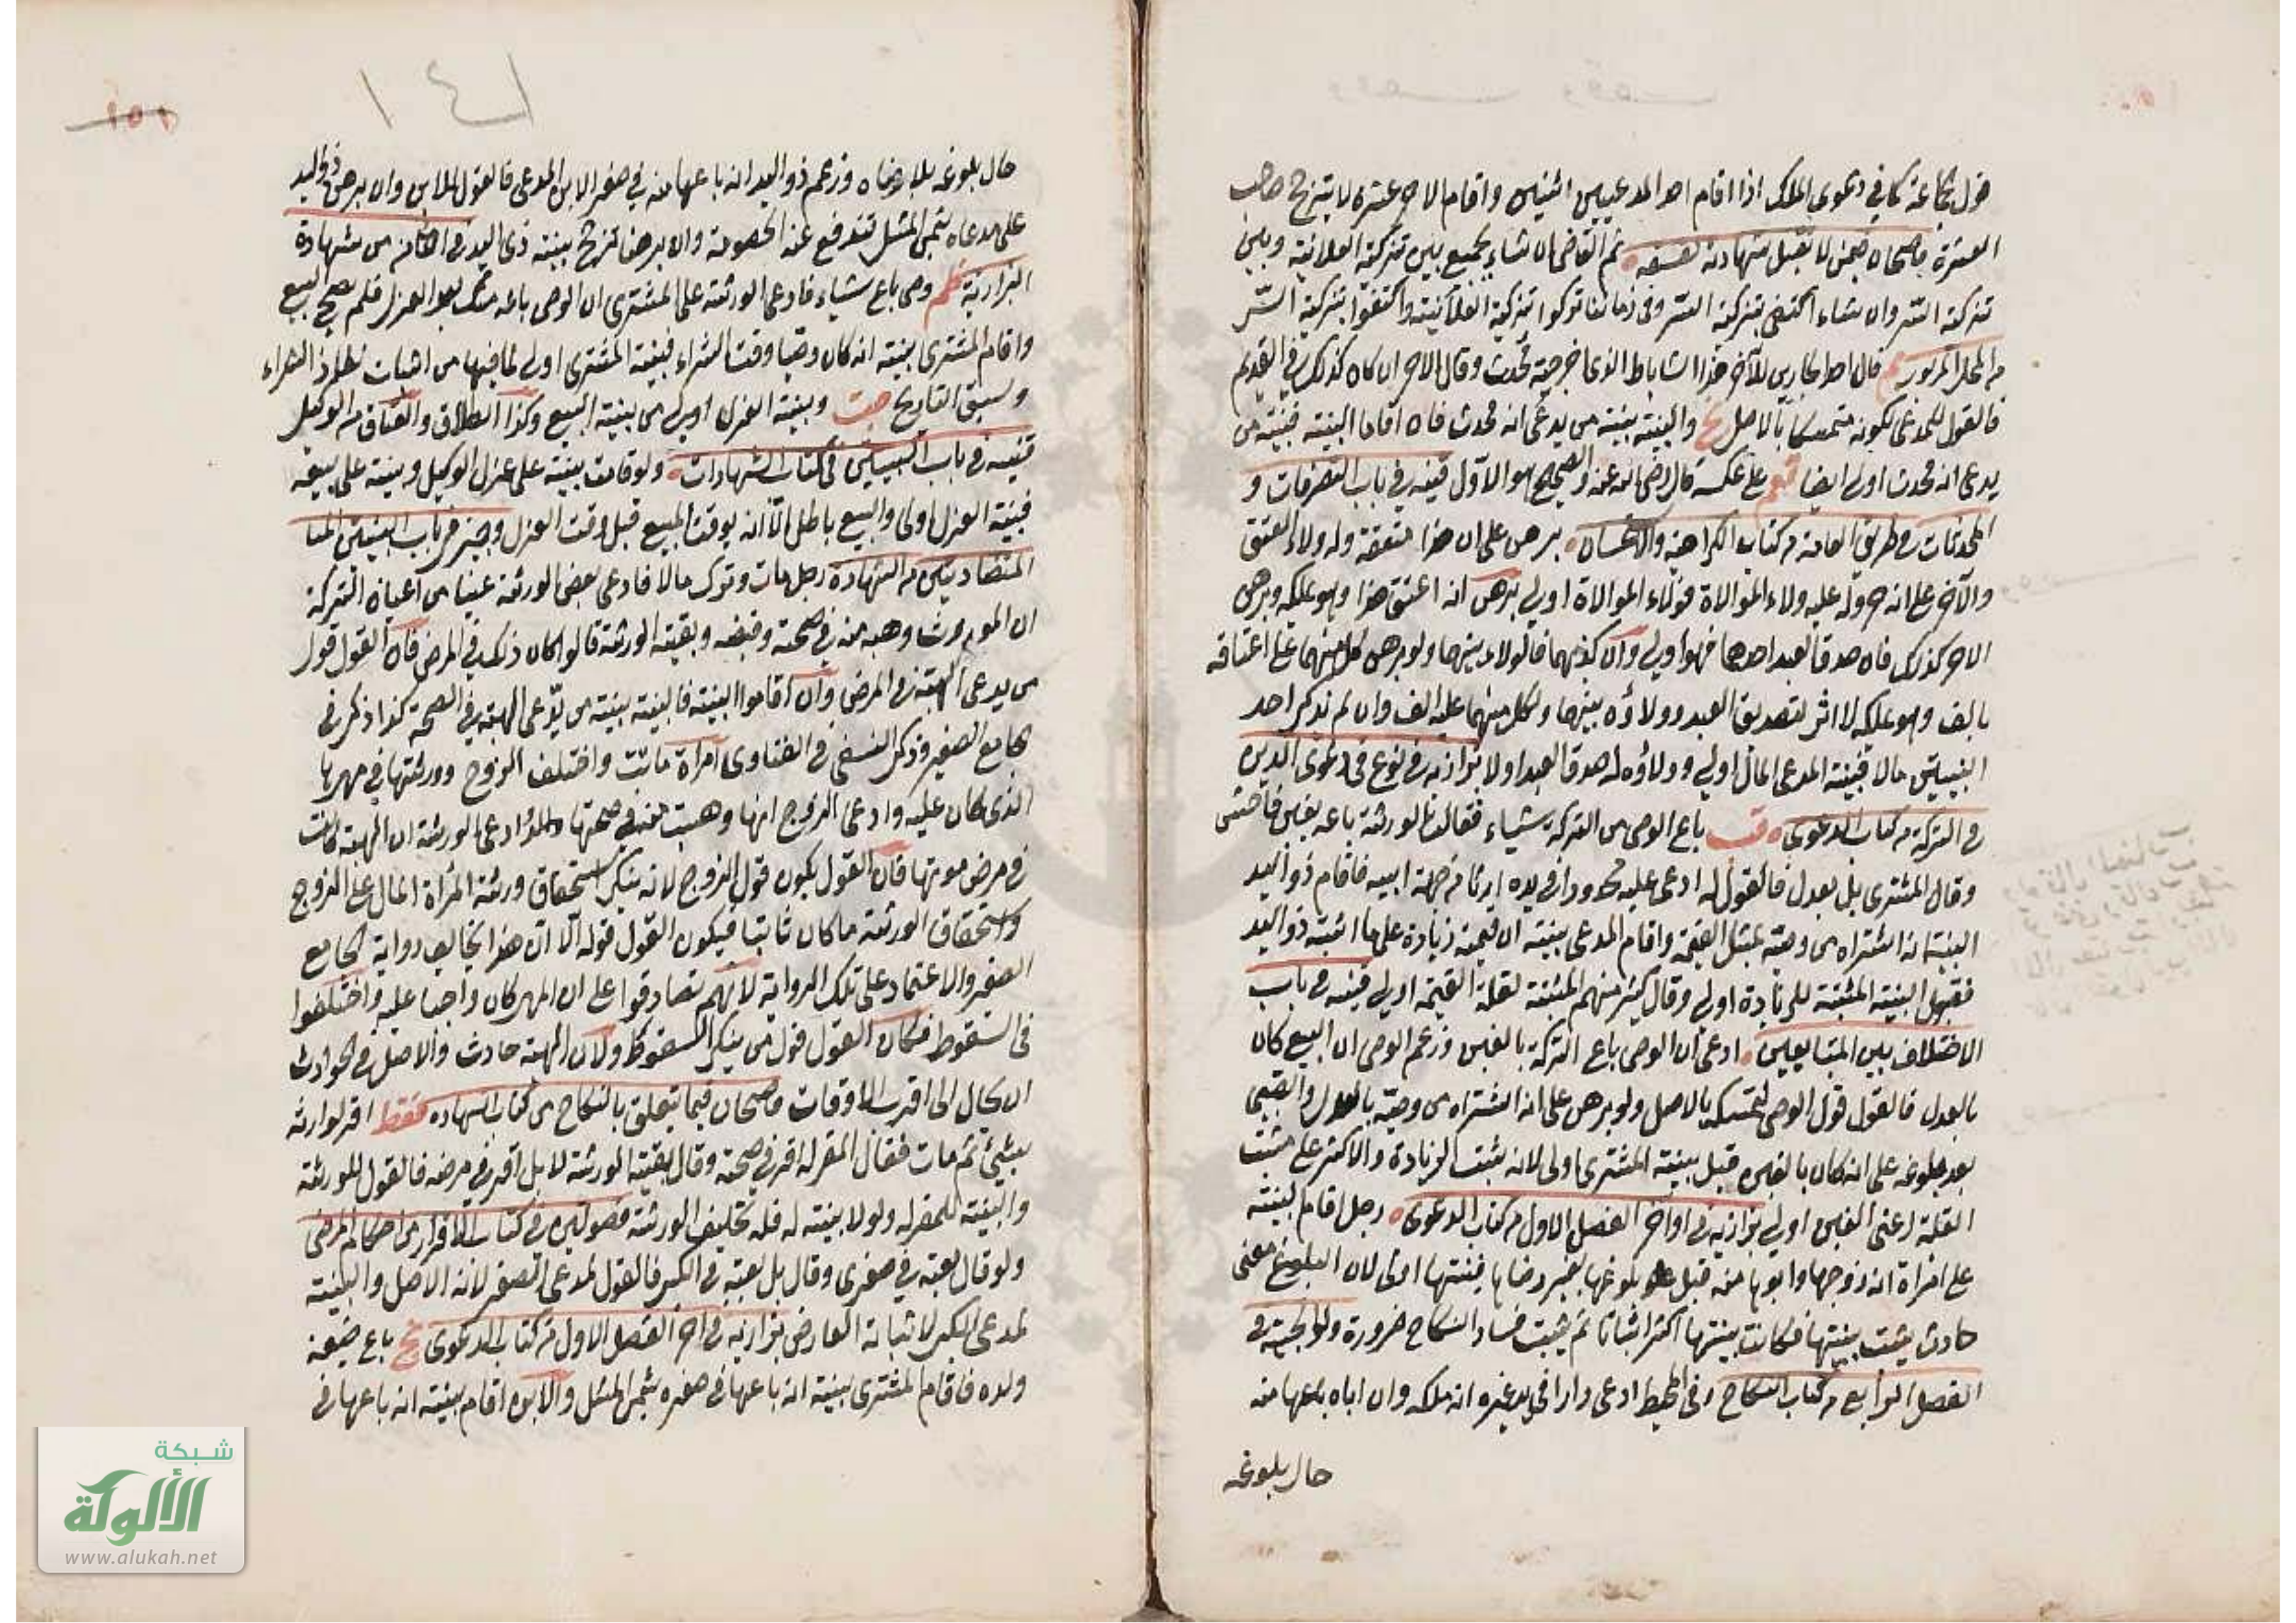 قول جماعة كما في دعوى الملك اذا اقام احد المدعيين اثنين واقام الاخر عشرة لا يترجح صاحب
العشرة قاضيخان فيمن لا تقبل شهادته لفسقه ثم القاضي ان شاء يجمع بين تزكية العلانية وبين
تزكية السر وان شاء اكتفى بتزكية السر وفي زماننا تركوا تزكية العلانية واكتفوا بتزكية السر
من المحل المزبور قال احد الجارين للآخر هذا الساباط الذي اخرجته محدث وقال الاخر ان كان كذلك في القديم
فالقول للمدعى لكونه متمسكا بالاصل والبينة بينة من يدعى انه محدث فان اقاما البينة فبينة من
يدعى انه محدث اولى ايضا على عكسه قال رضي الله عنه والصحيح هو الاول قنيه في باب التصرفات و
المحدثات في طريق العامة من كتاب الكراهية والاستحسان برهن على ان هذا معتقه وله ولاء العتق
والآخر على انه حر وله عليه ولاء الموالاة فولاء الموالاة اولى برهن انه اعتق هذا وهو يملكه وبرهن
الاخر كذلك فان صدق العبد احدهما فهو اولى وان كذبهما فالولاء بينهما ولو برهن كل منهما على اعتاقه
بالف وهو يملكه لا اثر لتصديق العبد وولاؤه بينهما ولكل منهما عليه الف وان لم يذكر احد
البينتين مالا فبينة المدعى المال اولى وولاؤه له صدق العبد اولا بزازيه في نوع في دعوى الدين
في التركة من كتاب الدعوى باع الوصي من التركة شياء فقالت الورثة باعه بغبن فاحش
وقال المشترى بل بعدل فالقول له ادعى عليه محدودا في يده ارثا من جهة ابيه فاقام ذو اليد
البينة انه اشتراه من وصيه بمثل القيمة واقام المدعى بينة ان قيمته زيادة على ما اثبته ذو اليد
فقبول البينة المثبتة للزيادة اولى وقال كثير منهم المثبتة لقلة القيمة اولى قنيه في باب
الاختلاف بين المتبايعين ادعى ان الوصي باع التركة بالغبن وزعم الوصي ان البيع كان
بالعدل فالقول قول الوصي لتمسكه بالاصل ولو برهن على انه اشتراه من وصيه بالعدل والصبي
بعد بلوغه على انه كان بالغبن قبل بينة المشترى اولى لانه يثبت الزيادة والاكثر على مثبت
القلة اعني الغبن اولى بزازيه في اواخر الفصل الاول من كتاب الدعوى رجل اقام البينة
على امراة انه زوجها وابوها منه قبل بلوغها بغير رضاها فبينتها اولى لان البلوغ معنى
حادث يثبت ببينتها فكانت بينتها اكثر اثباتا ثم يثبت فساد النكاح ضرورة ولوالجية في
الفصل الرابع من كتاب النكاح وفي المحيط ادعى دارا في يد غيره انه ملكه وان اباه باعها منه
حال بلوغه
١٥١
١٤١
حال بلوغه بلا رضاه وزعم ذو اليد انه باعها منه في صغر الابن المدعى فالقول للابن وان برهن ذو اليد
على مدعاه بثمن المثل تندفع عنه الخصومة وان برهنا ترجح بينة ذي اليد من شهادة
البزازية وصي باع شياء فادعى الورثة على المشترى ان الوصي باعه بعد العزل فلم يصح البيع
واقام المشترى بينة انه كان وصيا وقت الشراء فبينة المشترى اولى لما فيها من اثبات نفاذ الشراء
وسبق التاريخ وبينة العزل اولى من بينة البيع وكذا الطلاق والعتاق من الوكيل
قنيه في باب البينتين في كتاب الشهادات ولو قامت بينة على عزل الوكيل وبينة على بيعه
فبينة العزل اولى والبيع باطل الا انه يوقت المبيع قبل وقت العزل وجيز في باب البينتين
المتضادتين من الشهادة رجل مات وترك مالا فادعى بعض الورثة عينا من اعيان التركة
ان المورث وهبه منه في صحته وقبضه وبقية الورثة قالوا كان ذلك في المرض فان القول قول
من يدعى الهبة في المرض وان اقاموا البينة فالبينة بينة من يدعى الهبة في الصحة كذا ذكر في
جامع الصغير وذكر النسفي في الفتاوى امراة ماتت واختلف الزوج وورثتها في مهرها
الذي كان عليه وادعى الزوج انها وهبت منه في صحتها وادعى الورثة ان الهبة كانت
في مرض موتها فان القول يكون قول الزوج لانه ينكر استحقاق ورثة المرأة المال على الزوج
واستحقاق الورثة ما كان ثابتا فيكون القول قوله الا ان هذا يخالف رواية الجامع
الصغير والاعتماد على تلك الرواية لانهم تصادقوا على ان المهر كان واجبا عليه واختلفوا
في السقوط فكان القول قول من ينكر السقوط ولان الهبة حادث والاصل في الحوادث
ان يحال الى اقرب الاوقات قاضيخان فيما يتعلق بالنكاح من كتاب الشهادة فقط اقر لوارثه
بشيء ثم مات فقال المقر له اقر في صحته وقال بقية الورثة لا بل اقر في مرضه فالقول للورثة
والبينة للمقر له ولو لا بينة له فله تحليف الورثة فصولين في كتاب الاقرار من احكام المرضى
ولو قال بعته في صغرى وقال بل بعته في الكبر فالقول لمدعى الصغر لانه الاصل والبينة
لمدعى الكبر لاثباته العارض بزازيه في آخر الفصل الاول من كتاب الدعوى باع ضيعة
ولده فاقام المشترى بينة انه باعها في صغره بثمن المثل والابن اقام بينة انه باعها في
شبكة
الألوكة
www.alukah.net